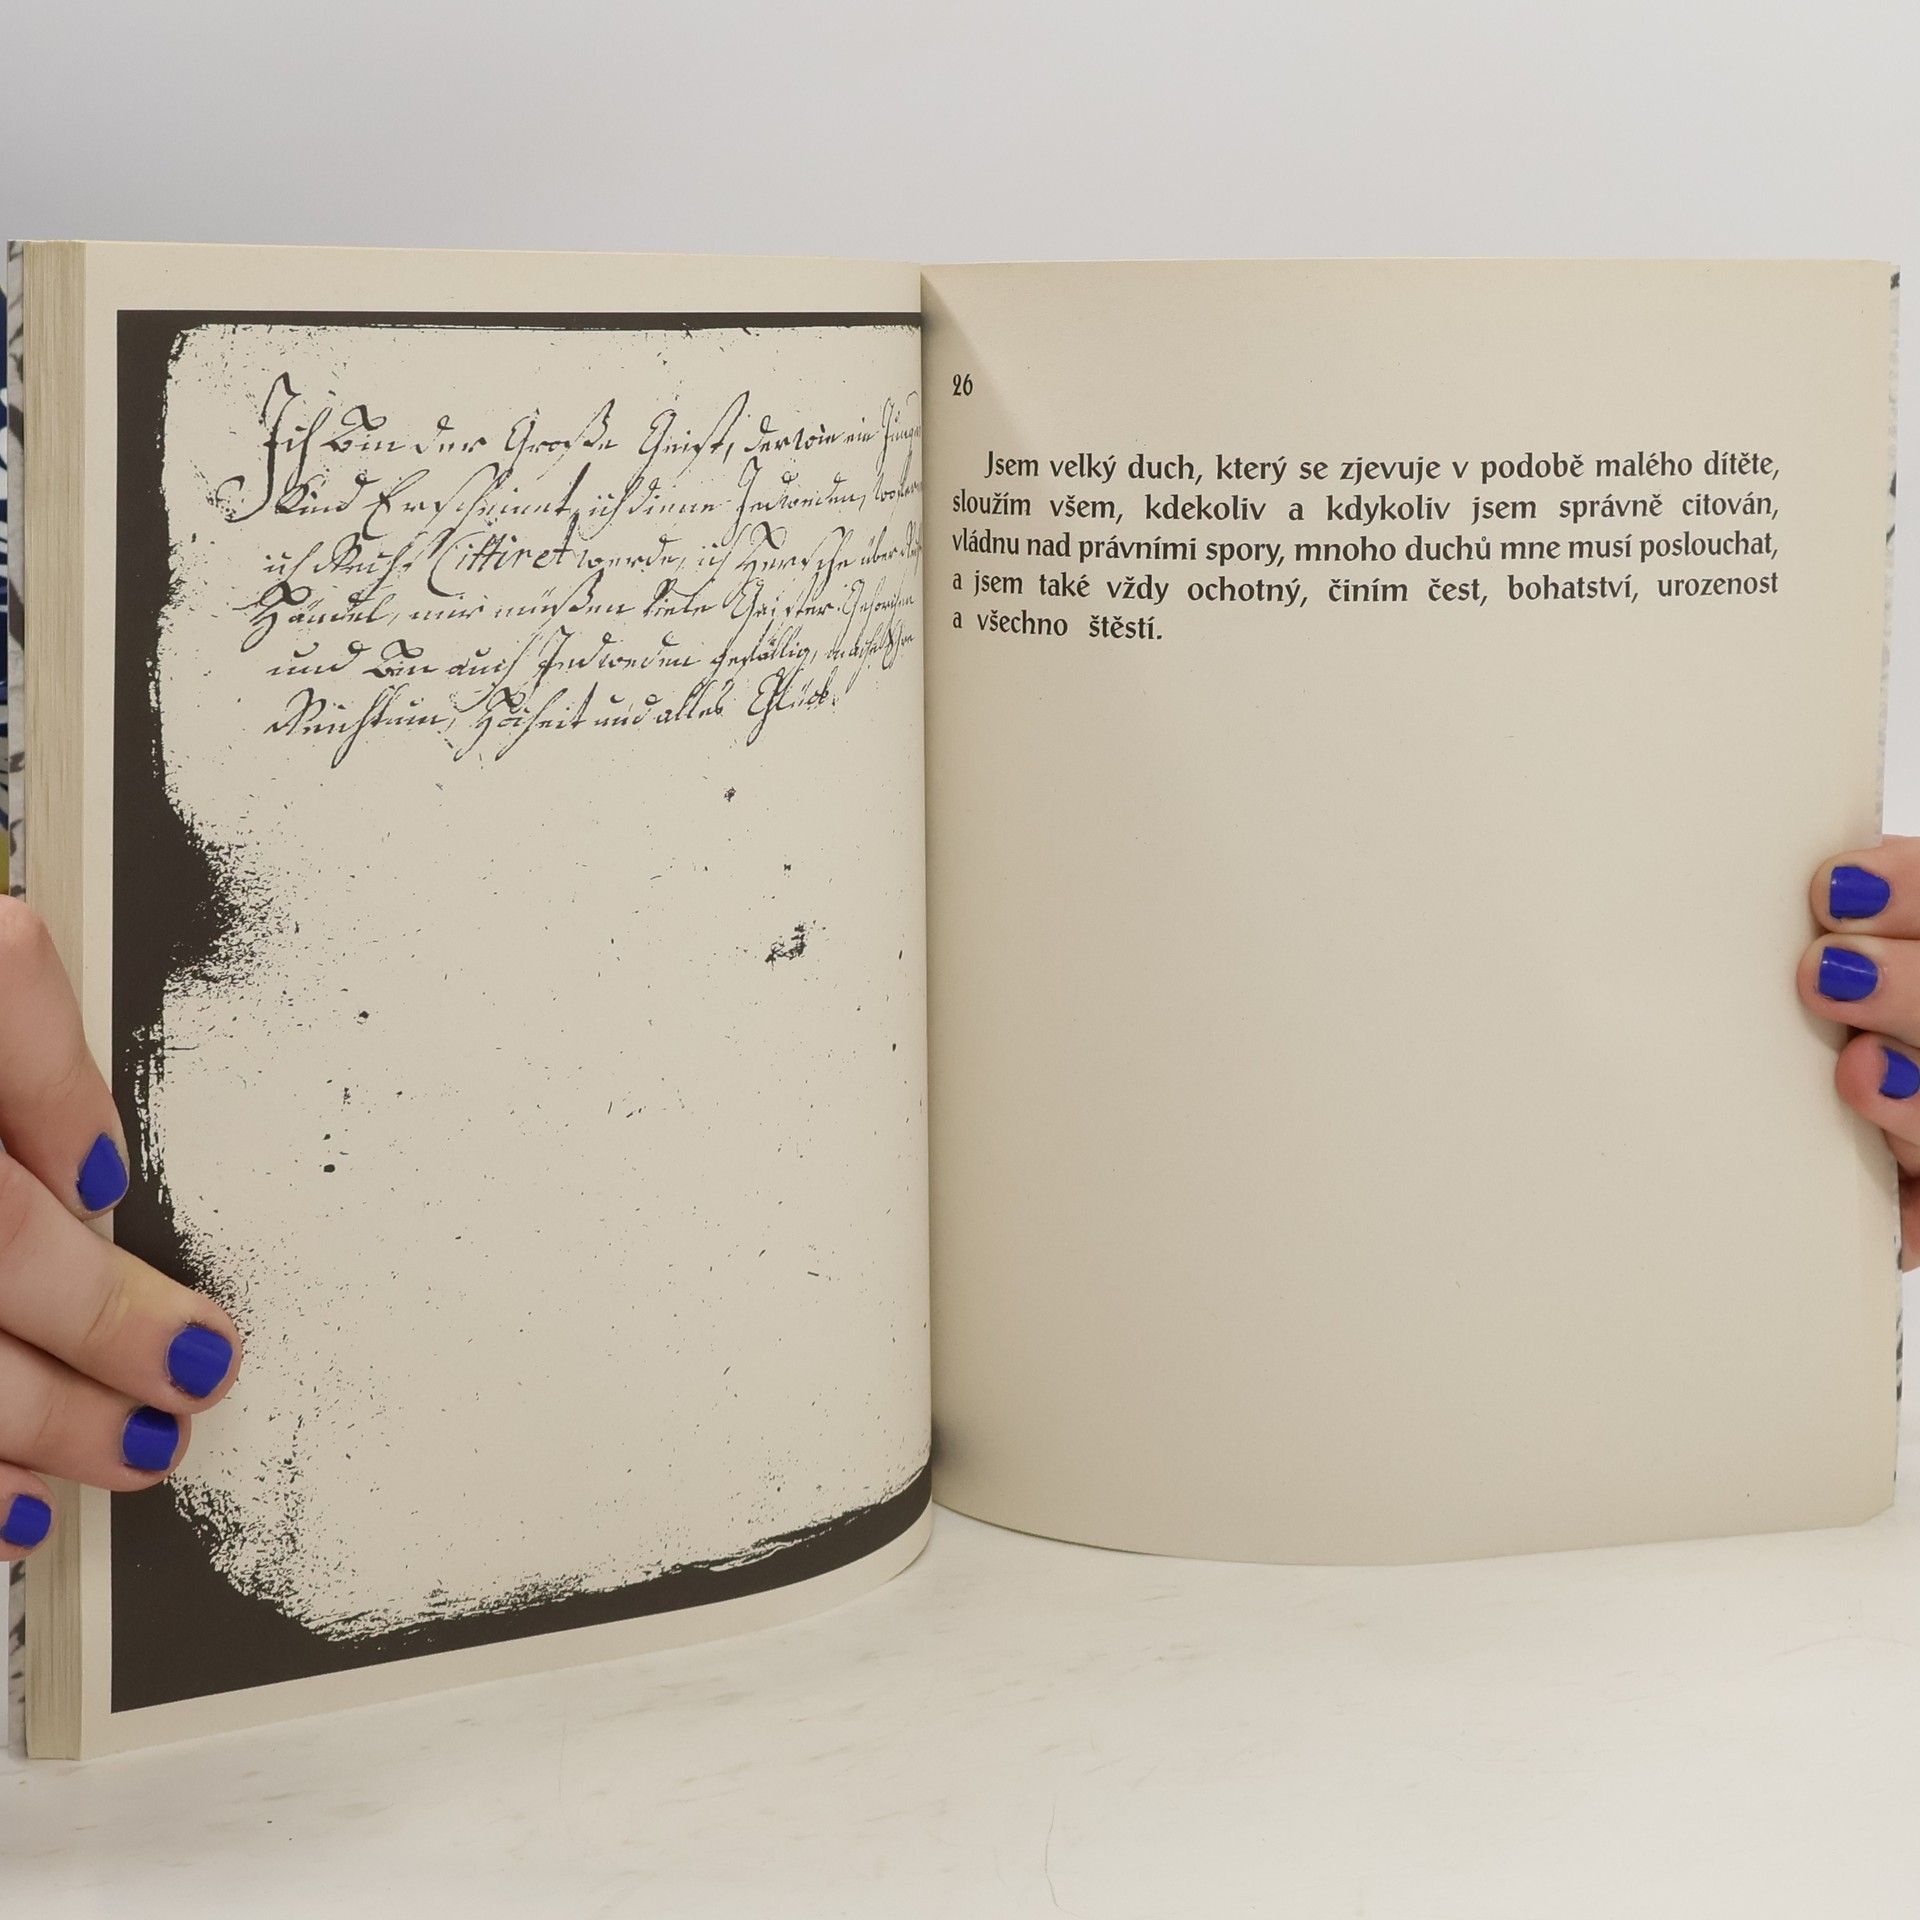 Ich Bin der Große Geist, der wie ein
Kind Erscheinet, ich diene Jedweden,
ich Recht Cittiret werde, ich Hersche über
Händel, mir müßen Viele Geister Gehorchen
und Bin auch Jedweden gefällig, mache Ehre
Reichtum, Hoheit und alles Glück.
26
Jsem velký duch, který se zjevuje v podobě malého dítěte,
sloužím všem, kdekoliv a kdykoliv jsem správně citován,
vládnu nad právními spory, mnoho duchů mne musí poslouchat,
a jsem také vždy ochotný, činím čest, bohatství, urozenost
a všechno štěstí.